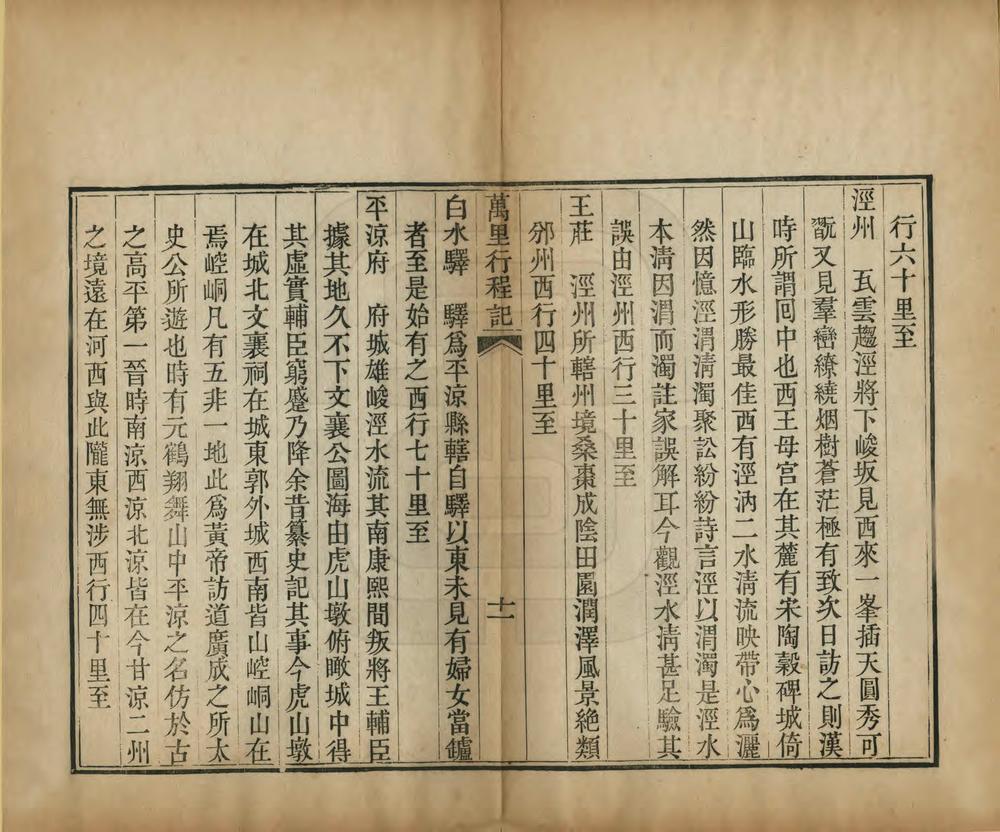 行六十里至
涇州　瓦雲趨涇將下峻坂見西來一峯插天圓秀可
翫又見羣巒繚繞烟樹蒼茫極有致次日訪之則漢
時所謂回中也西王母宮在其麓有宋陶穀碑城倚
山臨水形勝最佳西有涇汭二水清流映帶心爲灑
然因憶涇渭清濁聚訟紛紛詩言涇以渭濁是涇水
本淸因渭而濁註家誤解耳今觀涇水淸甚足驗其
誤由涇州西行三十里至
王莊　涇州所轄州境桑棗成陰田園潤澤風景絕類
邠州西行四十里至
萬里行程記
十一
白水驛　驛爲平涼縣轄自驛以東未見有婦女當鑪
者至是始有之西行七十里至
平涼府　府城雄峻涇水流其南康熙間叛將王輔臣
據其地久不下文襄公圖海由虎山墩俯瞰城中得
其虛實輔臣窮蹙乃降余昔纂史記其事今虎山墩
在城北文襄祠在城東郭外城西南皆山崆峒山在
焉崆峒凡有五非一地此爲黃帝訪道廣成之所太
史公所遊也時有元鶴翔舞山中平涼之名仿於古
之高平第一晉時南涼西涼北涼皆在今甘涼二州
之境遠在河西與此隴東無涉西行四十里至